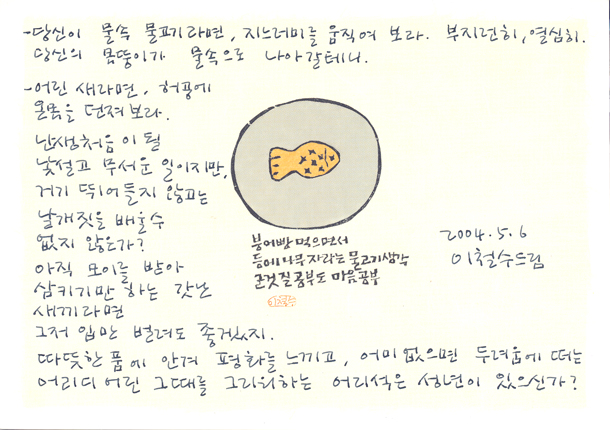 -당신이 물속 물고기라면, 지느러미를 움직여 보라. 부지런히, 열심히.
당신의 몸뚱이가 물속으로 나아갈테니.
-어린 새라면, 허공에
온몸을 던져보라.
난생처음이 될
낯설고 무서운 일이지만,
거기 뛰어들지 않고는
날개짓을 배울수
없지 않은가?
아직 모이를 받아
삼키기만 하는 갓난
새끼라면
그저 입만 벌려도 좋겠지.
따뜻한 품에 안겨 평화를 느끼고, 어미없으면 두려움에 떠는
어리디 어린 그때를 그리워하는 어리석은 성년이 있으신가?
붕어빵 먹으면서
등에 나무 자라는 물고기 생각
군것질 공부도 마음공부
2004.5.6
이철수드림